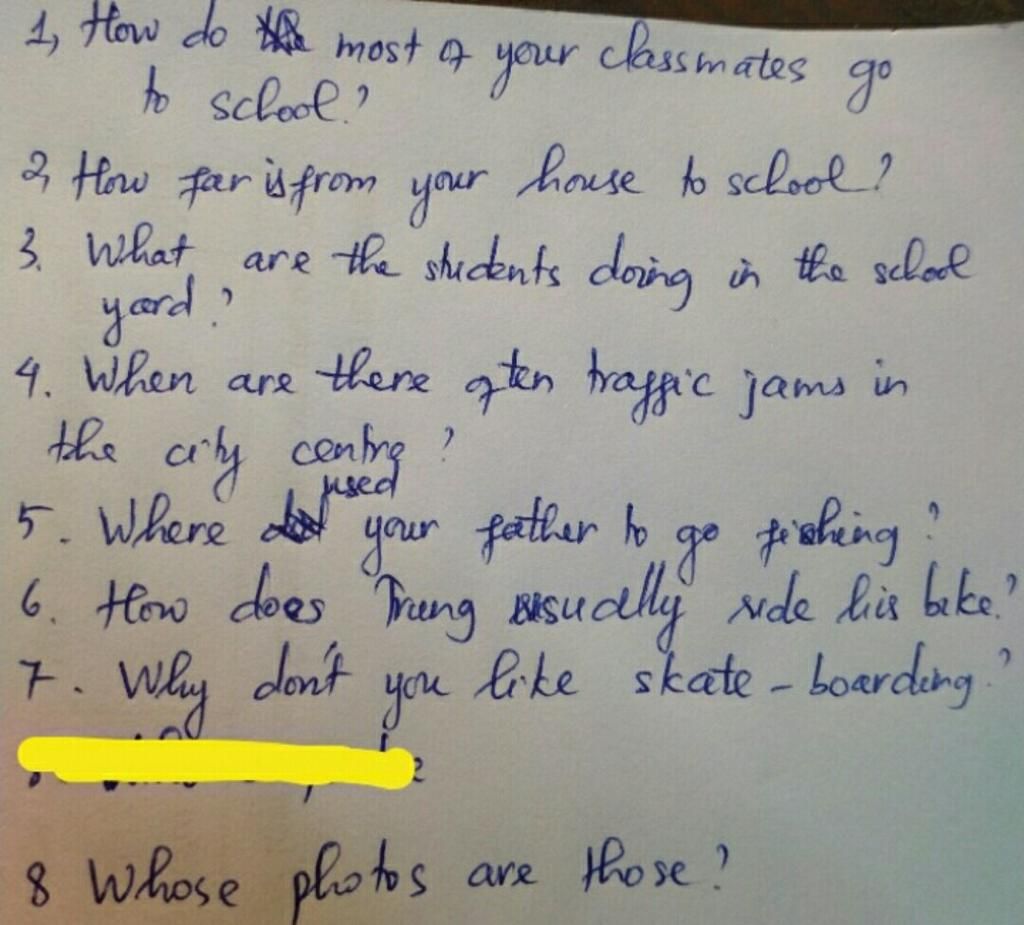 1, How do most of your classmates go
to school?
2, How far is from your house to school?
3. What are the students doing in the school
yard?
4. When are there often traffic jams in
the city centre?
used
5. Where your father to go fishing?
6. How does Trung usually ride his bike?
7. Why don't you like skate-boarding?
8 Whose photos are those?